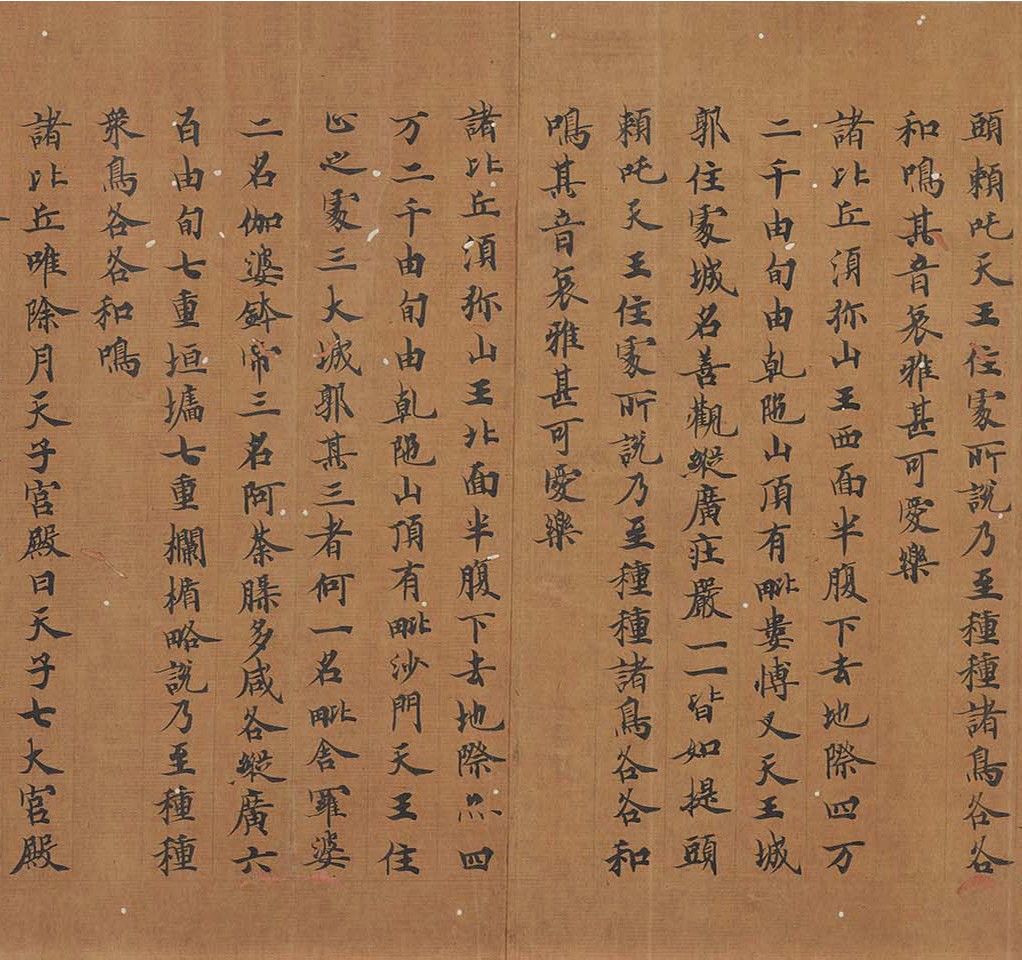 頭賴吒天王住處所說乃至種種諸鳥各各
和鳴其音哀雅甚可愛樂
諸比丘須弥山王西面半腹下去地際四万
二千由旬由乹陁山頂有毗婁博叉天王城
郭住處城名善觀縱廣莊嚴一一皆如提頭
賴吒天王住處所說乃至種種諸鳥各各和
鳴其音哀雅甚可愛樂
諸比丘須弥山王北面半腹下去地際亦四
万二千由旬由乹陁山頂有毗沙門天王住
止之處三大城郭其三者何一名毗舍羅婆
二名伽婆鉢帝三名阿荼䐭多咸各縱廣六
百由旬七重垣墻七重欄楯略說乃至種種
衆鳥各各和鳴
諸比丘唯除月天子宮殿日天子七大宮殿